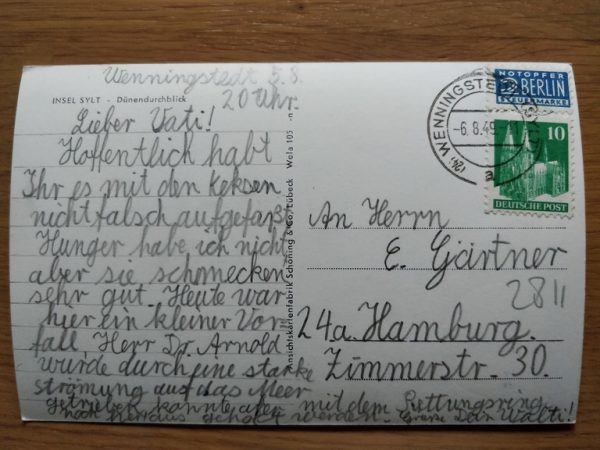 Wenningstedt 5.8.
INSEL SYLT - Dünendurchblick
20 Uhr.
Lieber Vati!
Hoffentlich habt
Ihr es mit den Keksen
nicht falsch aufgefaßt
Hunger habe ich nicht
aber sie schmecken
sehr gut. Heute war
hier ein kleiner Vor-
fall Herr Dr. Arnold
wurde durch eine starke
strömung aus das Meer
getrieben kannte aber mit dem Rettungsring
heraus geholt werden. Dein Walti!
Ansichtskartenfabrik Schöning & Co., Lübeck Wela 105
WENNINGSTEDT
(24)
-6.8.49.-
a
NOTOPFER
2 BERLIN
STEUERMARKE
10
DEUTSCHE POST
An Herrn
E. Gärtner
2811
24a. Hamburg.
Zimmerstr. 30.